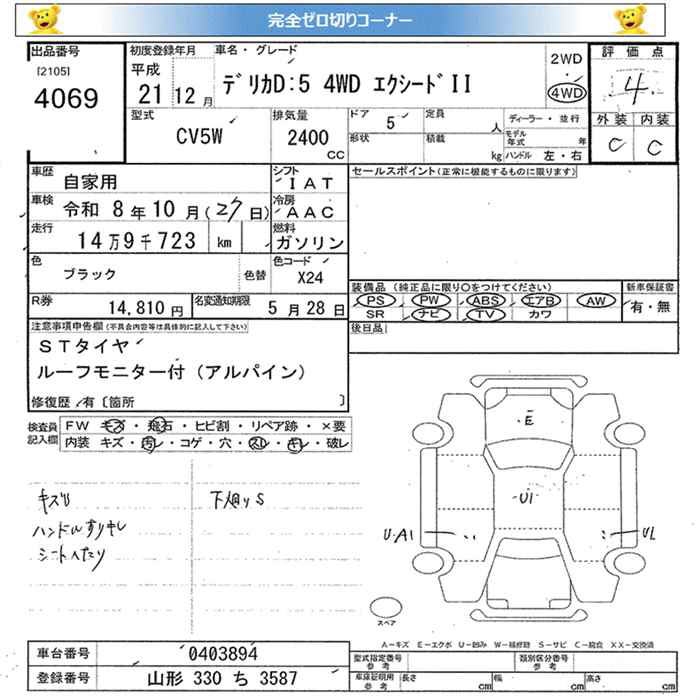 完全ゼロ切りコーナー
出品番号 初度登録年月 車名・グレード 評価点
[2105] 平成 デリカD:5 4WD エクシードII 2WD 4
4069 21 12月 4WD
型式 排気量 ドア 5 定員 人 ディーラー・並行 外装 内装
CV5W 2400 cc 形状 積載 kg モデル年式 年 C C
ハンドル 左・右
車歴 自家用 シフト IAT セールスポイント(正常に機能するものに限ります)
車検 令和 8年 10月(27日) 冷房 AAC
走行 14万9千723 km 燃料 ガソリン
色 ブラック 色替 色コード X24
装備品 (純正品に限り〇をつけてください) 新車保証書
R券 14,810円 名変通知期限 5月28日 PS PW ABS エアB AW 有・無
SR ナビ TV カワ
注意事項申告欄(不具合内容等は具体的に記入して下さい) 後日品
STタイヤ
ルーフモニター付(アルパイン)
修復歴 有〔箇所 〕
検査員記入欄 FW キズ・飛石・ヒビ割・リペア跡・×要
内装 キズ・汚レ・コゲ・穴・スレ・キレ・破レ
E
キズU 下廻りS U1
ハンドルすりキレ U・A1 UL
シートへたり
スペア
A-キズ E-エクボ U-凹み W-補修跡 S-サビ C-腐食 XX-交換済
車台番号 0403894 型式指定番号 参考 類別区分番号 参考
登録番号 山形 330 ち 3587 車庫証明用 参考 長さ cm 幅 cm 高さ cm